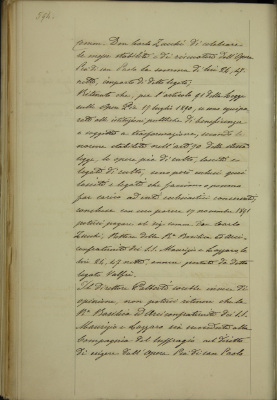 594.
parroco Don Carlo Zucchi di celebrare
le messe stabilite e di riscuotere dall'Opera
Pia di San Paolo la somma di lire 24,45
netto, importo di detto legato;
Ritenuto che, per l'articolo 91 della Legge
sulle Opere Pie 17 luglio 1890, si sono equipa-
rati alle istituzioni pubbliche di beneficenza
e soggetti a trasformazione, secondo le
norme stabilite nell'art. 70 della stessa
legge le opere pie di culto, lasciti e
legati di culto, eccezione esclusi quei
lasciti e legati che facciano o possono
far carico ad enti ecclesiastici conservati,
concludeva con suo parere 17 novembre 1891
potersi pagare al sig. comm. Don Carlo
Zucchi, Rettore della R.ª Basilica ed Arci-
confraternita dei S.S. Maurizio e Lazzaro, le
lire 24,45 nette, annue portate da detto
legato
Il Direttore sarebbe invece di
opinione, non potersi ritenere che la
R.ª Basilica ed Arciconfraternita dei S.S.
Maurizio e Lazzaro sia succeduta alla
Compagnia del Suffragio nel diritto
di esigere dall'Opera Pia di San Paolo